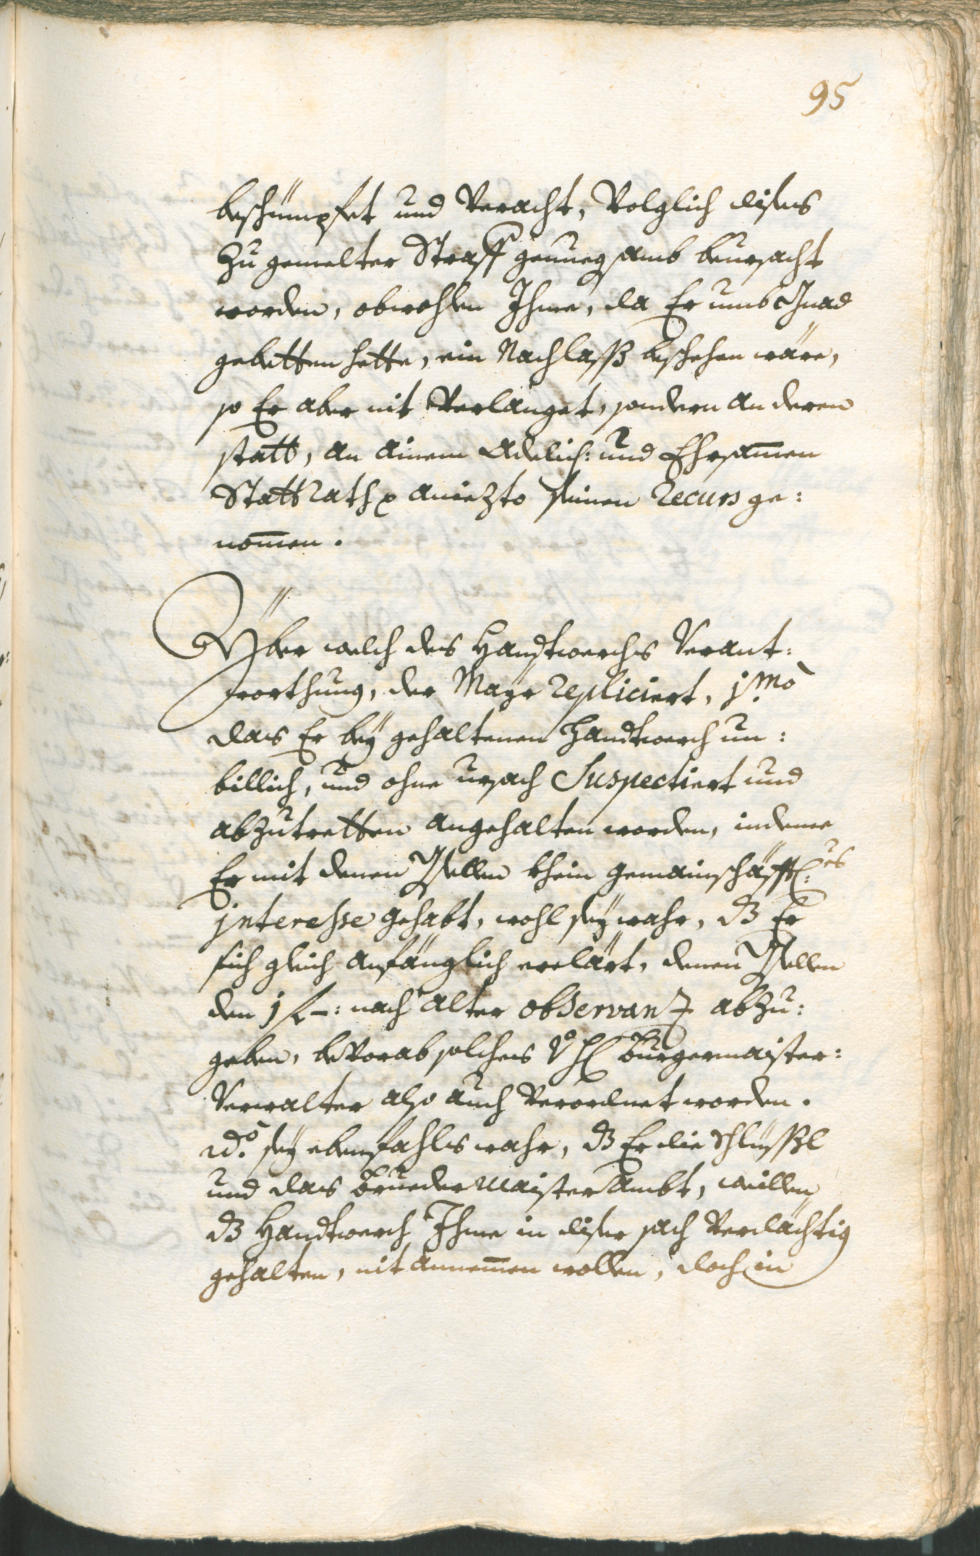 95
beschümpfet und Veracht, Volglich dises
Zu gemelter Straff genuegsamb beursacht
worden, obwohlen Ihme, da Er umb Gnad
gebetten hette, ein Nachlaß beschehen wäre,
so Er aber nit Verlanget, sondern an deren
statt, an ainem Adelich: und Ehrsam̄en
StattRath aniezto seinen Recurs ge:
nom̄en.
Yber welch des Handtwerchs Verant:
worthung, der Mayr repliciert, j.mo
das Er bey gehaltenen Handtwerch un:
billich, und ohne ursach Suspectiert und
abzutretten angehalten worden, indeme
Er mit denen Gsellen khein gemainschafftl:es
jnteresse gehabt, wohl sey wahr, dz Er
sich gleich anfänglich erclärt, denen Gsellen
den j f –: nach alter observanz abzu:
geben, bevorab solches Burgermaister:
Verwalter also auch Verordnet worden.
2do. sey ebenfahls wahr, dz Er die Schlüssl
und das Bruedermaister Ambt, weillen
dz Handtwerch Ihme in diser sach Verdächtig
gehalten, nit annem̄en wollen, doch in